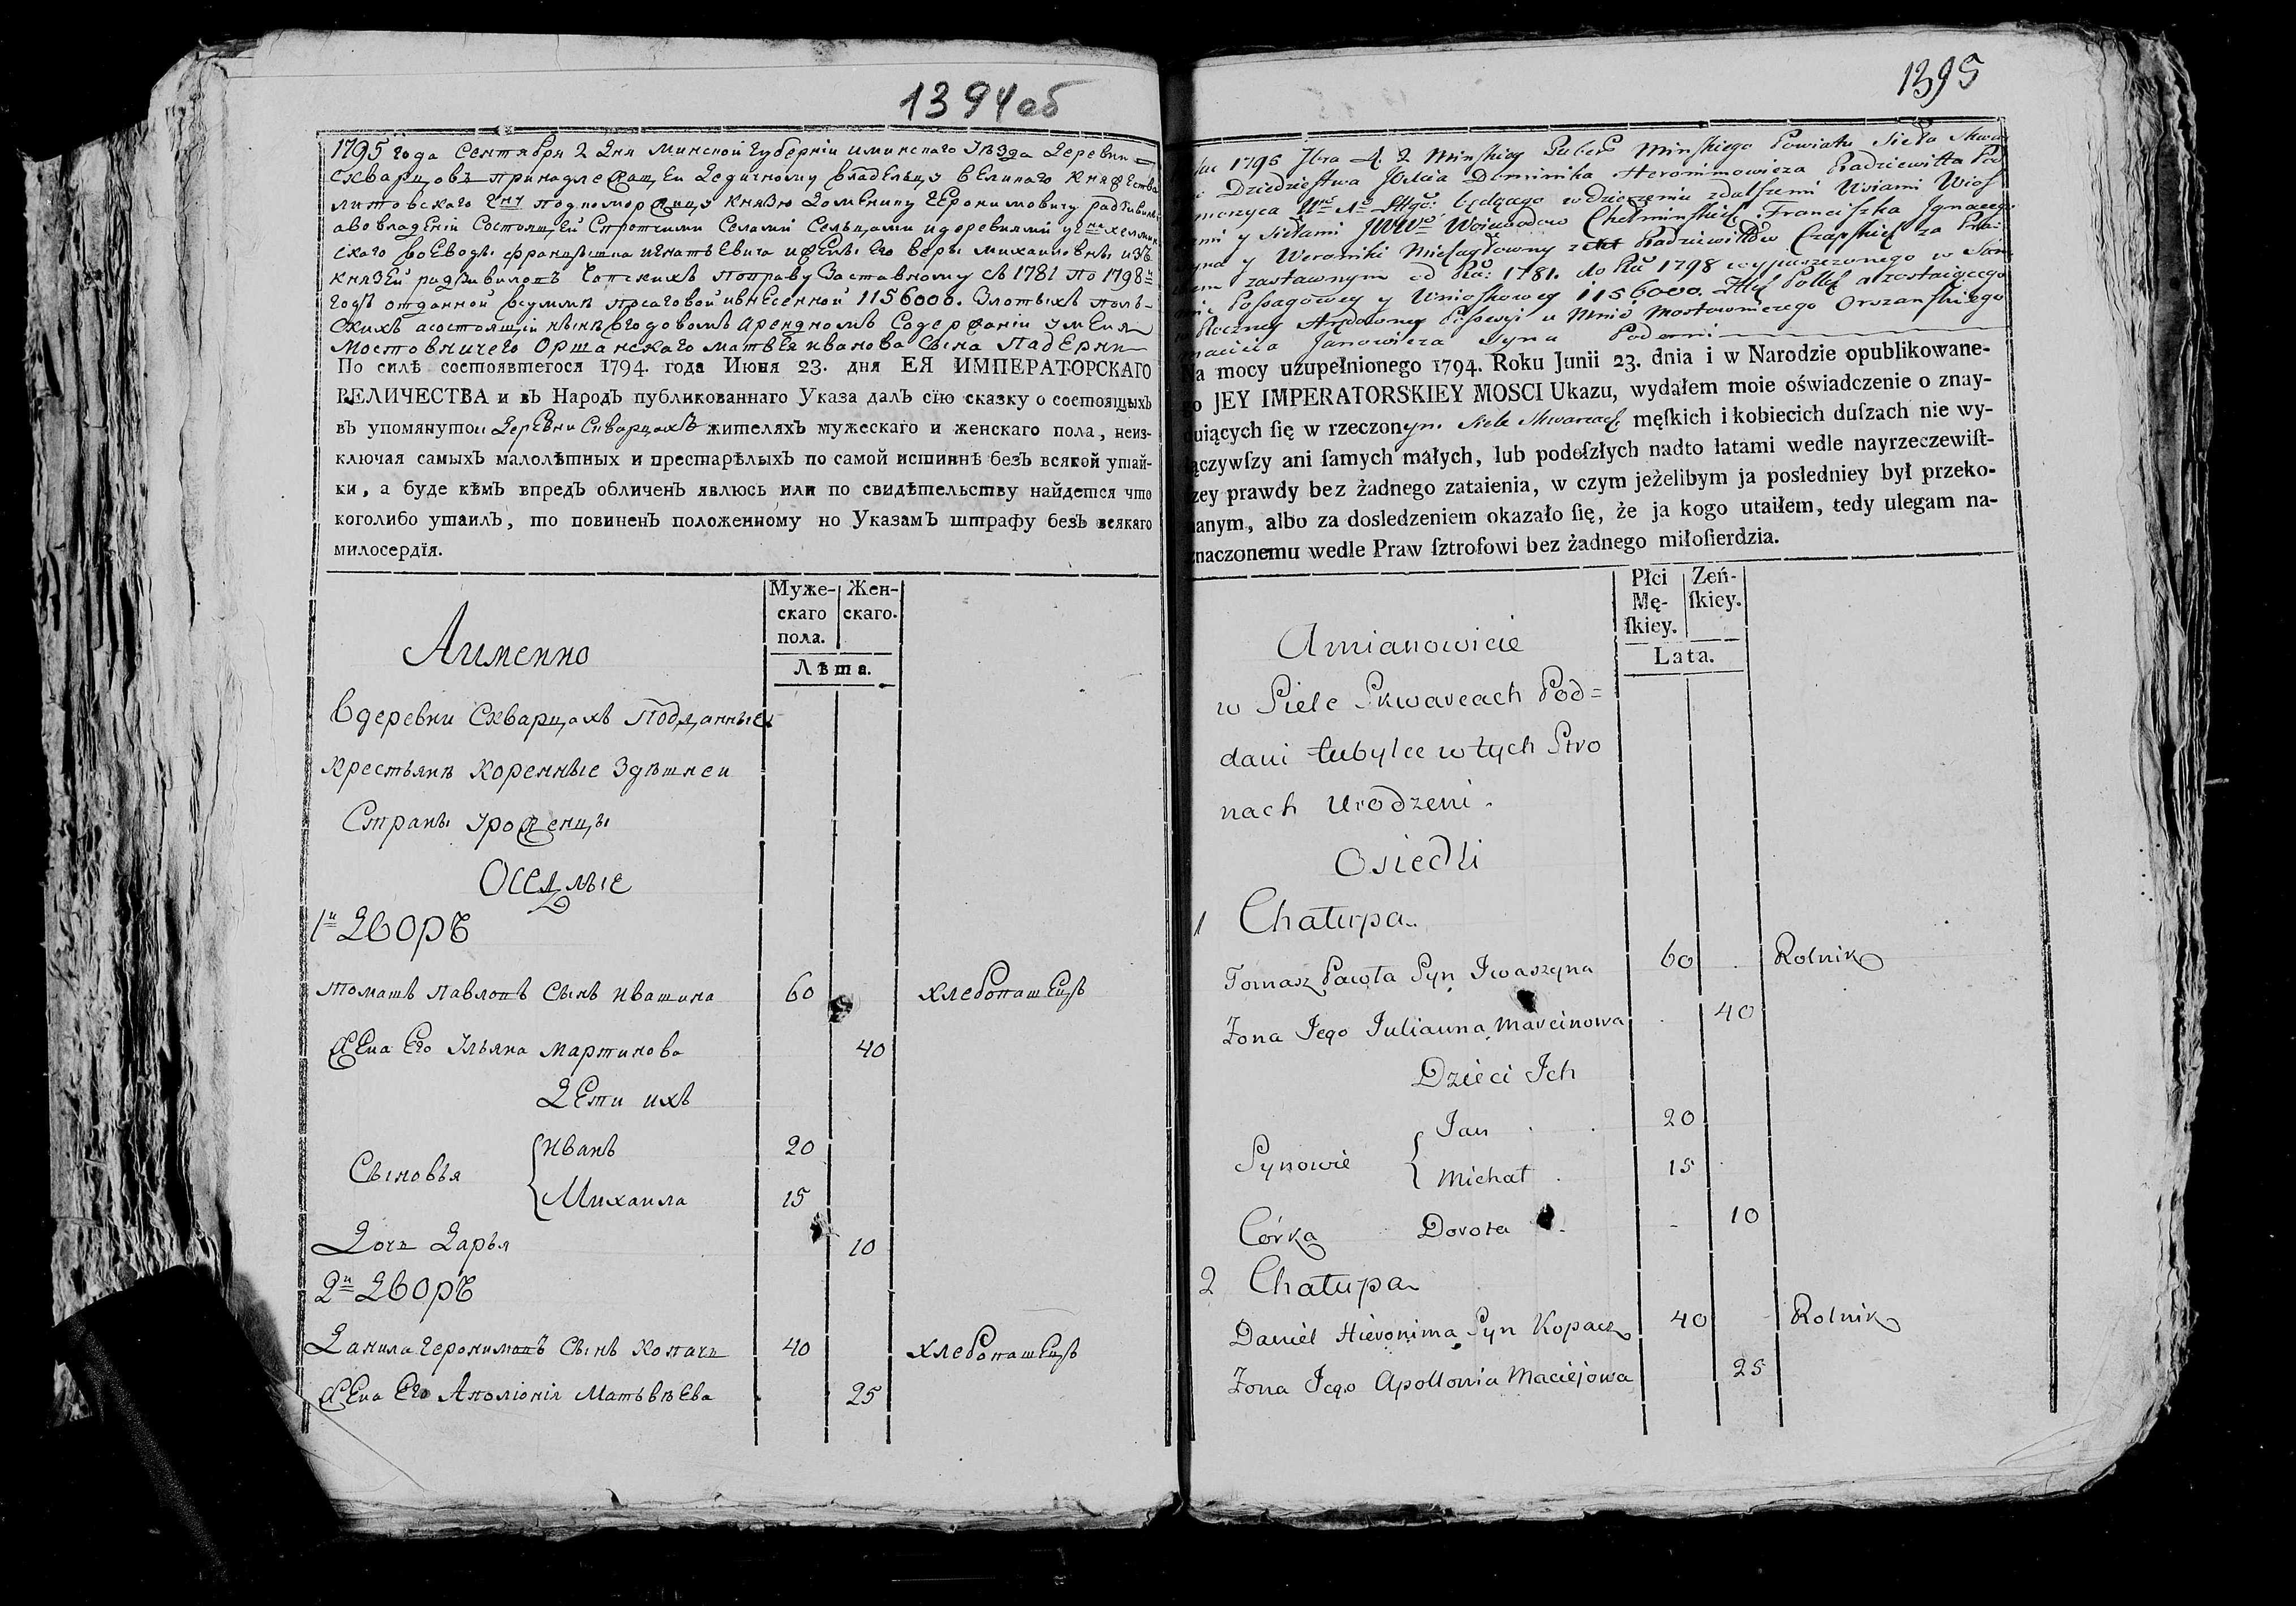 1394об
1795 года Сентября 2 дня Минской Губерніи и Минскаго Уѣзда Деревни
Скварцовъ принадлежащей Дедичному владельцу великаго Княжества
литовскаго подкоморжицу князю Доминику Героnимовичу
во владеніи Состоящей Спротчими Селами Сельцами и деревнями
скаго воеводы Францишка Игнатьевича и жены его веры михаиловны изъ
князей радзивиловъ Чапскихъ по праву Заставному съ 1781 по 1798
годъ отданной всумме посаговой и внесенной 1156000. Злотыхъ поль-
скихъ а состоящій нынѣ вгодовомъ арендномъ Содержаніи у меня
Мостовничего Оршанскаго матвея иванова Сына Падерни
По силѣ состоявшегося 1794. года Июня 23. дня ЕЯ ИМПЕРАТОРСКАГО
ВЕЛИЧЕСТВА и въ Народъ публикованнаго Указа далъ сїю сказку о состоящыхъ
въ упомянутои Деревни Скварцахъ жителяхъ мужескаго и женскаго пола, неиз-
ключая самыхъ малолѣтных и престарѣлыхъ по самой истиннѣ безъ всякой утай-
ки, а буде кѣмъ впредъ обличенъ явлюсь или по свидѣтельству найдется что
коголибо утаилъ, то повиненъ положенному но Указамъ штрафу безъ всякаго
милосердїя.
Муже-
скаго
пола.
Жен-
скаго.
Лѣта.
Аименно
вдеревни Скварцахъ Подданные
крестьянѣ коренные Здѣшнеи
Страны уроженцы
Оседлые
1й Дворъ
Томашъ Павловъ Сынъ Ивашина 60 хлебопашецъ
Жена Его Ульяна Мартинова 40
Дети ихъ
Сыновья
Иванъ 20
Михаила 15
Дочь Дарья 10
2й Дворъ
Данила Геронимовъ Сынъ Копачь 40 хлебопашецъ
Жена Его Аполіонія Матьвѣева 25
1395
1795 7bra d. 2 Minskiey Guber Minskiego Powiatu Sioła
Dziedzictwa Dominika Heronimowicza Radziwiłła
będącego w dzierżeniu z dalszemi Wsiami
y Siełami Woiewodow Chełminskich Franciszka
y Weroniki Michayłowny Radziwiłłow Czapskich za
zastawnym od 1781. do 1798 wypuszczonego w
Possagowey y Wnioskowey 1156000. a zostaiącego
Roczney Arędowney Possessyi u Mnie Mostowniczego Orszanskiego
Macieia Janowicza Syna Paderni
Na mocy uzupełnionego 1794. Roku Junii 23. dnia i w Narodzie opublikowane-
go JEY IMPERATORSKIEY MOSCI Ukazu, wydałem moie oświadczenie o znay-
duiących ſię w rzeczonym. Siele Skwarcach męſkich i kobiecich duſzach nie wy-
łączywſzy ani ſamych małych, lub podeſzłych nadto łatami wedle nayrzeczewiſt-
ſzey prawdy bez żadnego zataienia, w czym jeżelibym ja posledniey był przeko-
nanym, albo za dosledzeniem okazało ſię, że ja kogo utaiłem, tedy ulegam na-
znaczonemu wedle Praw ſztrofowi bez żadnego miłoſierdzia.
Płci
Mę-
ſkiey.
Zeń-
ſkiey.
Lata.
Amianowicie
w Siele Skwarcach Pod=
dani tubylce w tych Stro
nach Urodzeni.
Osiedli
1 Chałupa
Tomasz Pawła Syn Iwaszyna 60 Rolnik
Zona Jego Julianna Marcinowa 40
Dzieci Ich
Synowie
Jan 20
Michał 15
Córka Dorota 10
2 Chałupa
Daniel Hieronima Syn Kopacz 40 Rolnik
Zona Jego Apollonia Maciejowa 25